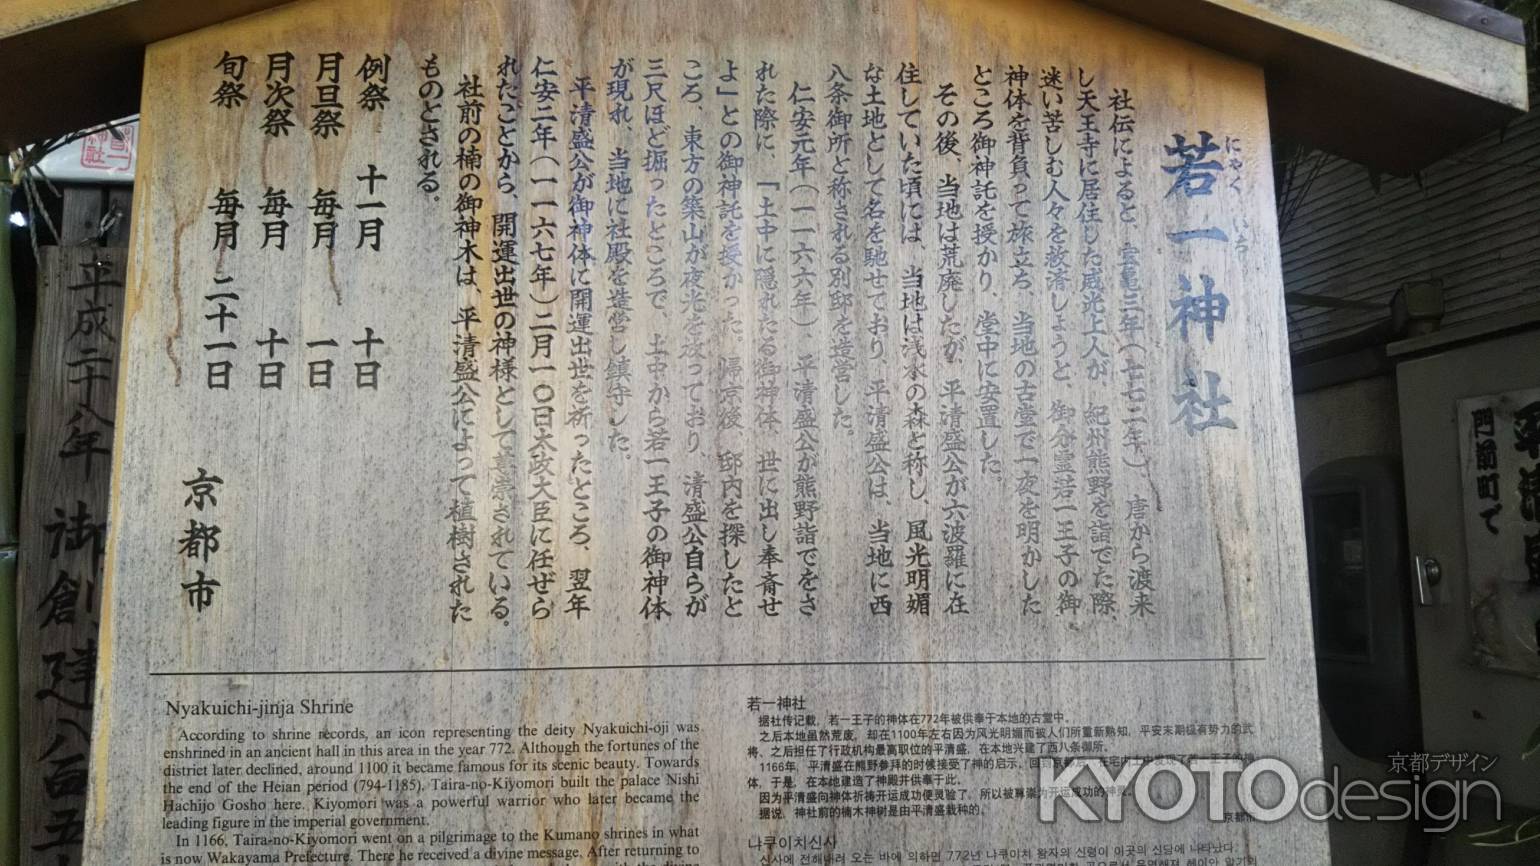 にゃくいち
若一神社
社伝によると、宝亀三年(七七二年)、唐から渡来
し天王寺に居住した威光上人が、紀州熊野を詣でた際、
迷い苦しむ人々を救済しようと、御分霊若一王子の御
神体を背負って旅立ち、当地の古堂で一夜を明かした
ところ御神託を授かり、堂中に安置した。
その後、当地は荒廃したが、平清盛公が六波羅に在
住していた頃には、当地は浅水の森と称し、風光明媚
な土地として名を馳せており、平清盛公は、当地に西
八条御所と称される別邸を造営した。
仁安元年(一一六六年)、平清盛公が熊野詣でをさ
れた際に、「土中に隠れたる御神体、世に出し奉斎せ
よ」との御神託を授かった。帰京後、邸内を探したと
ころ、東方の築山が夜光を放っており、清盛公自らが
三尺ほど掘ったところで、土中から若一王子の御神体
が現れ、当地に社殿を造営し鎮守した。
平清盛公が御神体に開運出世を祈ったところ、翌年
仁安二年(一一六七年)二月一〇日太政大臣に任ぜら
れたことから、開運出世の神様として尊崇されている。
社前の楠の御神木は、平清盛公によって植樹された
ものとされる。
例祭 十一月 十日
月旦祭 毎月 一日
月次祭 毎月 十日
旬祭 毎月 二十一日
京都市
平成二十八年 御創建八百五十
門前町で
Nyakuichi-jinja Shrine
According to shrine records, an icon representing the deity Nyakuichi-oji was
enshrined in an ancient hall in this area in the year 772. Although the fortunes of the
district later declined, around 1100 it became famous for its scenic beauty. Towards
the end of the Heian period (794-1185), Taira-no-Kiyomori built the palace Nishi
Hachijo Gosho here. Kiyomori was a powerful warrior who later became the
leading figure in the imperial government.
In 1166, Taira-no-Kiyomori went on a pilgrimage to the Kumano shrines in what
is now Wakayama Prefecture. There he received a divine message. After returning to
若一神社
据社传记载，若一王子的神体在772年被供奉于本地的古堂中。
之后本地虽然荒废，却在1100年左右因为风光明媚而被人们所重新熟知，平安末期握有势力的武
将、之后担任了行政机构最高职位的平清盛，在本地兴建了西八条御所。
1166年，平清盛在熊野参拜的时候接受了神的启示，回到京都后，在宅内土中发现了若一王子的神
体，于是，在本地建造了神殿并供奉于此。
因为平清盛向神体祈祷开运成功便灵验了，所以被尊崇为开运成功的神灵。
据说，神社前的楠木神树是由平清盛栽种的。
京都市
나쿠이치신사
신사에 전해내려 오는 바에 의하면 772년 나쿠이치 왕자의 신령이 이곳의 신당에 나타났다.
京都デザイン
KYOTOdesign